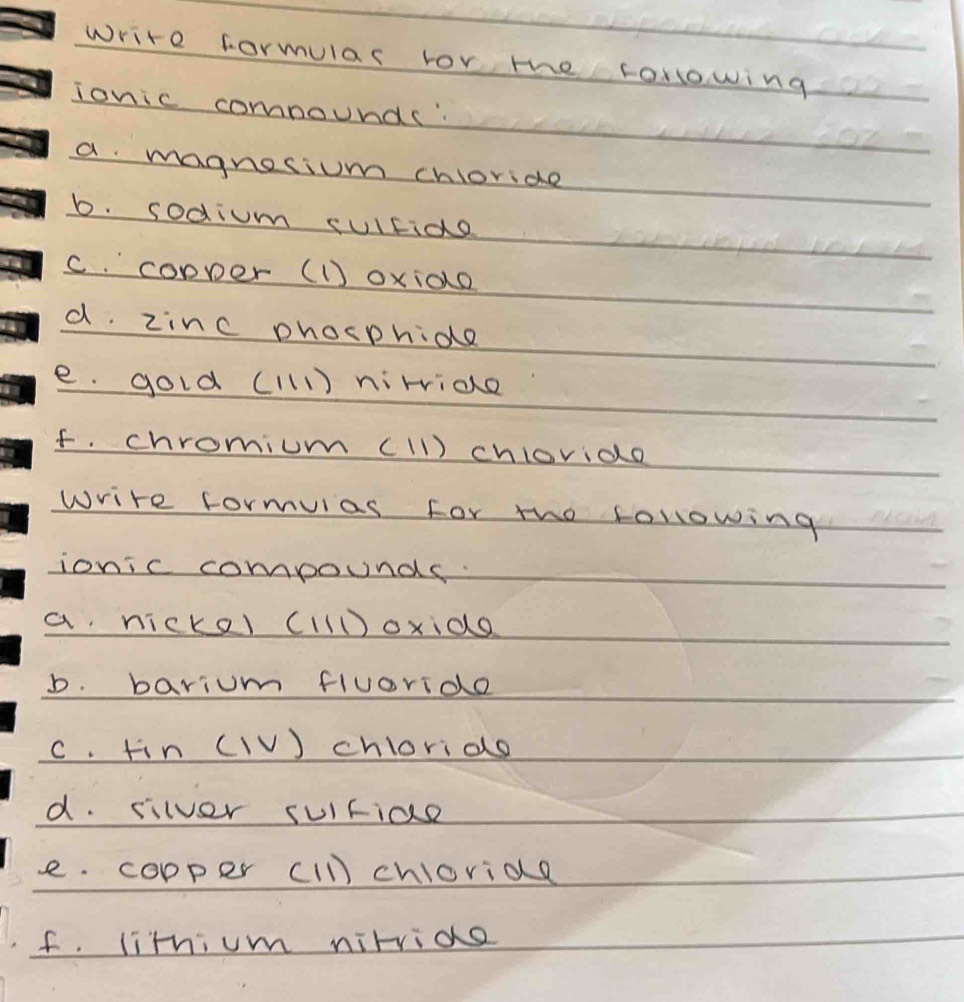 Write formulas for the following
ionic compounds:
a. magnesium chloride
b. sodium sulfide
c. copper (I) oxide
d. zinc phosphide
e. gold (III) nitride
f. chromium (II) chloride
Write formulas for the following
ionic compounds.
a. nickel (III) oxide
b. barium fluoride
c. tin (IV) chloride
d. silver sulfide
e. copper (II) chloride
f. lithium nitride